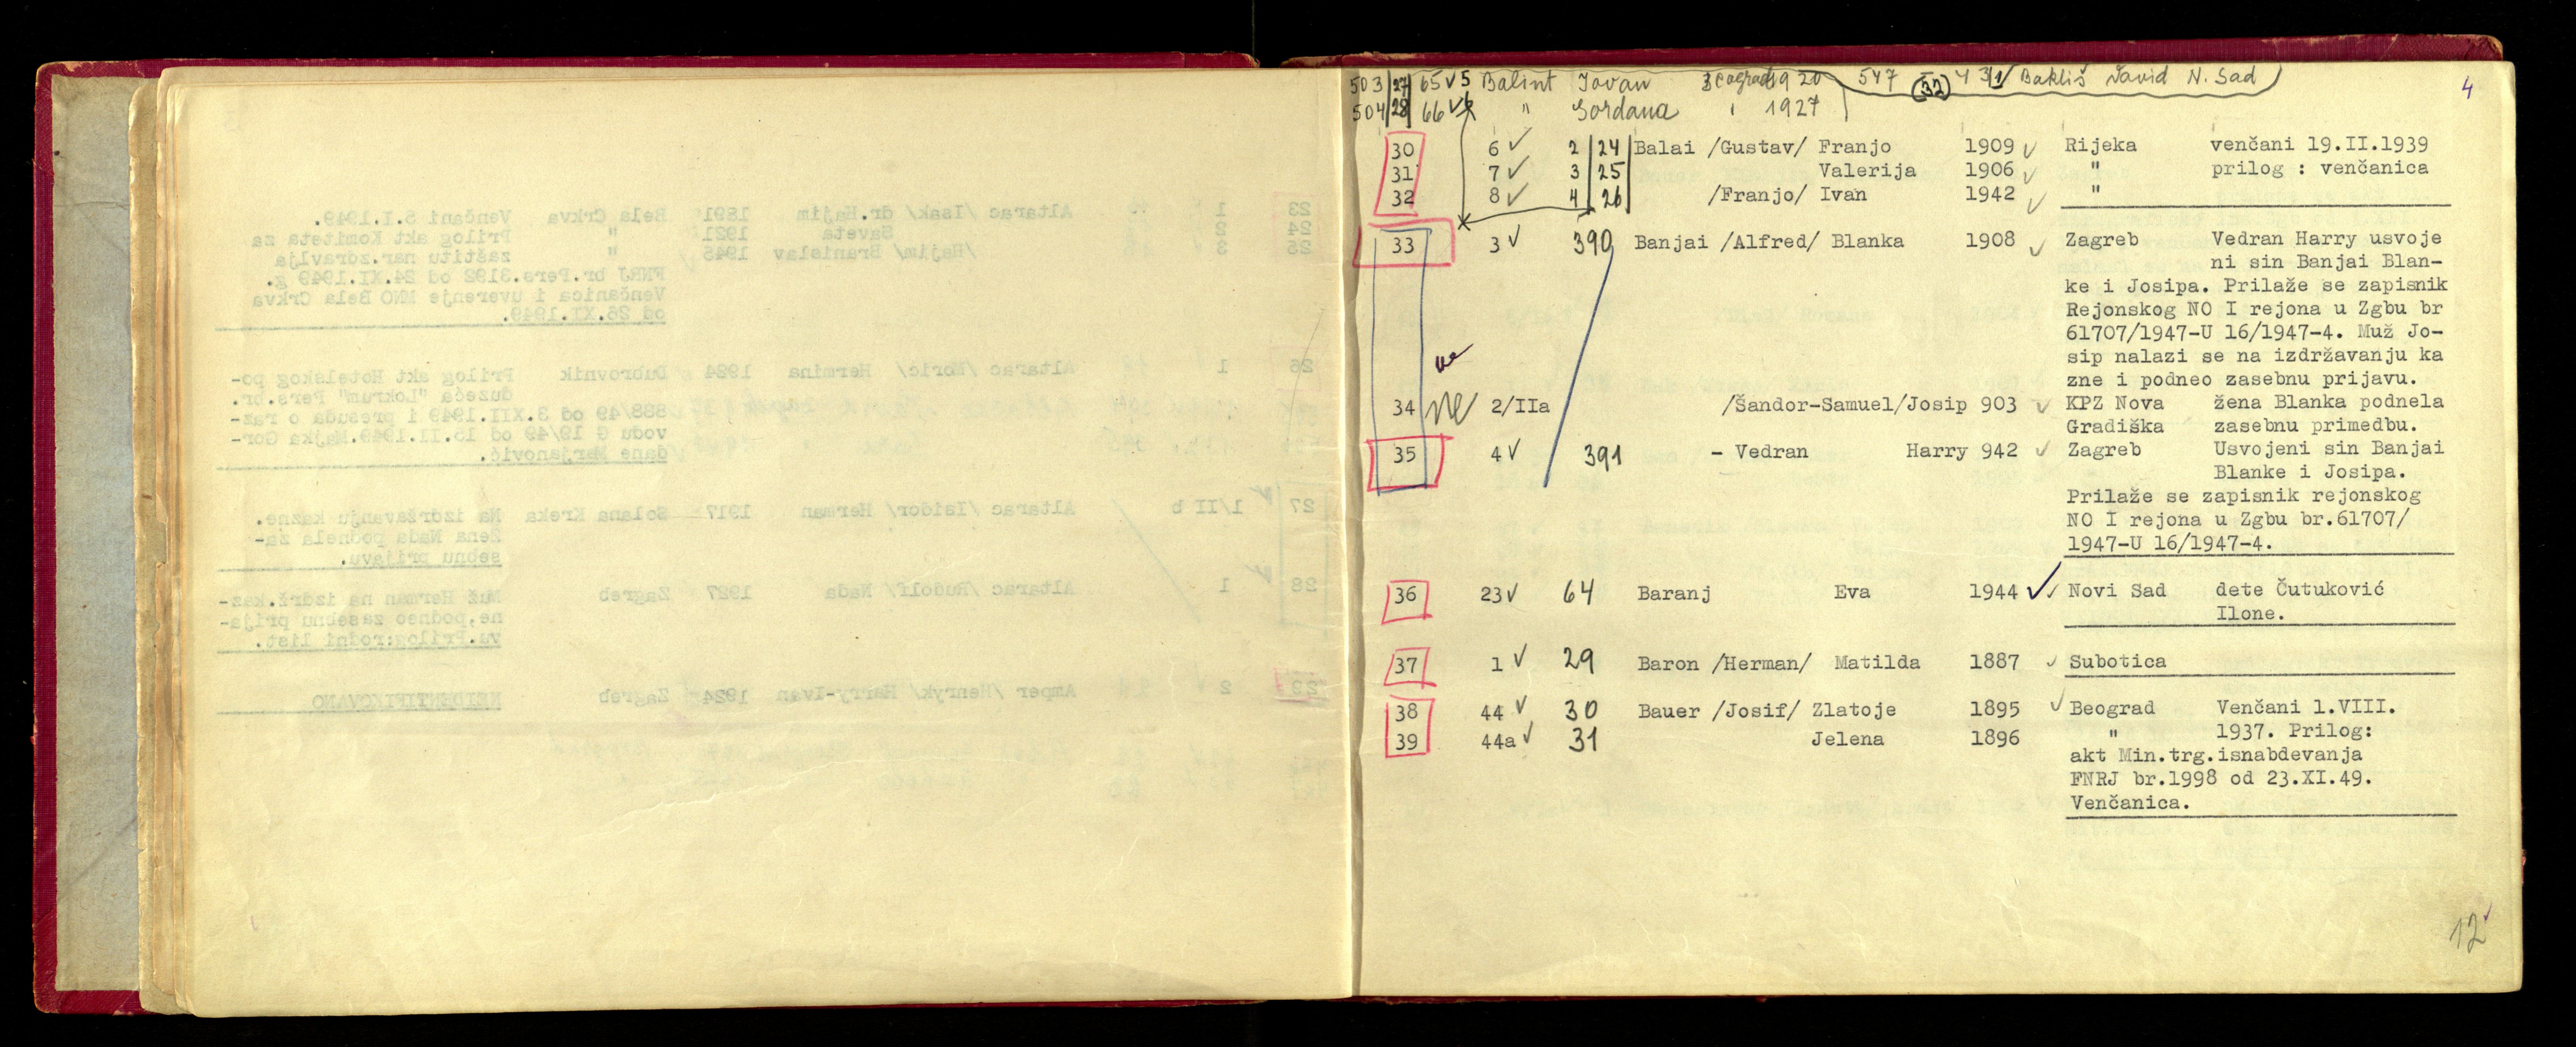 503 27 65 5 Balint Jovan Beograd 1920 547 32 431 Bakliš David N. Sad
4
504 28 66 " Gordana " 1927
30 6 2 24 Balai /Gustav/ Franjo 1909 Rijeka venčani 19.II.1939
31 7 3 25 Valerija 1906 " prilog : venčanica
32 8 4 26 /Franjo/ Ivan 1942 "
33 3 390 Banjai /Alfred/ Blanka 1908 Zagreb Vedran Harry usvoje
ni sin Banjai Blan-
ke i Josipa. Prilaže se zapisnik
Rejonskog NO I rejona u Zgbu br
61707/1947-U 16/1947-4. Muž Jo-
sip nalazi se na izdržavanju ka
zne i podneo zasebnu prijavu.
ne
34 ne 2/IIa /Šandor-Samuel/Josip 903 KPZ Nova žena Blanka podnela
Gradiška zasebnu primedbu.
35 4 391 - Vedran Harry 942 Zagreb Usvojeni sin Banjai
Blanke i Josipa.
Prilaže se zapisnik rejonskog
NO I rejona u Zgbu br.61707/
1947-U 16/1947-4.
36 23 64 Baranj Eva 1944 Novi Sad dete Čutuković
Ilone.
37 1 29 Baron /Herman/ Matilda 1887 Subotica
38 44 30 Bauer /Josif/ Zlatoje 1895 Beograd Venčani 1.VIII.
39 44a 31 Jelena 1896 " 1937. Prilog:
akt Min.trg.isnabdevanja
FNRJ br.1998 od 23.XI.49.
Venčanica.
12